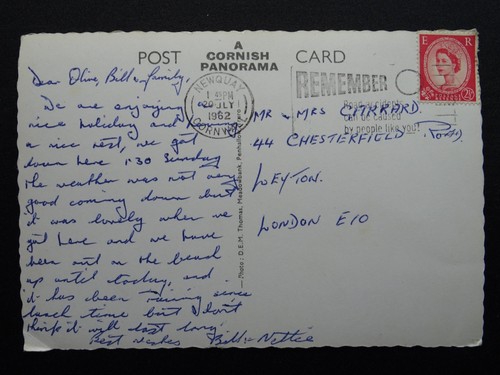 POST
A
CORNISH
PANORAMA
CARD
Dear Olive, Bill & family,
We are enjoying a
nice holiday and
a nice rest, we got
down here 1.30 Sunday
the weather was not very
good coming down but
it was lovely when we
got here and we have
been out on the beach
up until today, and
it has been raining since
lunch time but I don't
think it will last long.
Best wishes Bill & Nettie
NEWQUAY
1962
CORNWALL
REMEMBER
by people like you!
E R
2½
Photo: D.E.M. Thomas, Meadowbank,
MR & MRS GARRARD.
44 CHESTERFIELD ROAD,
LEYTON.
LONDON E10